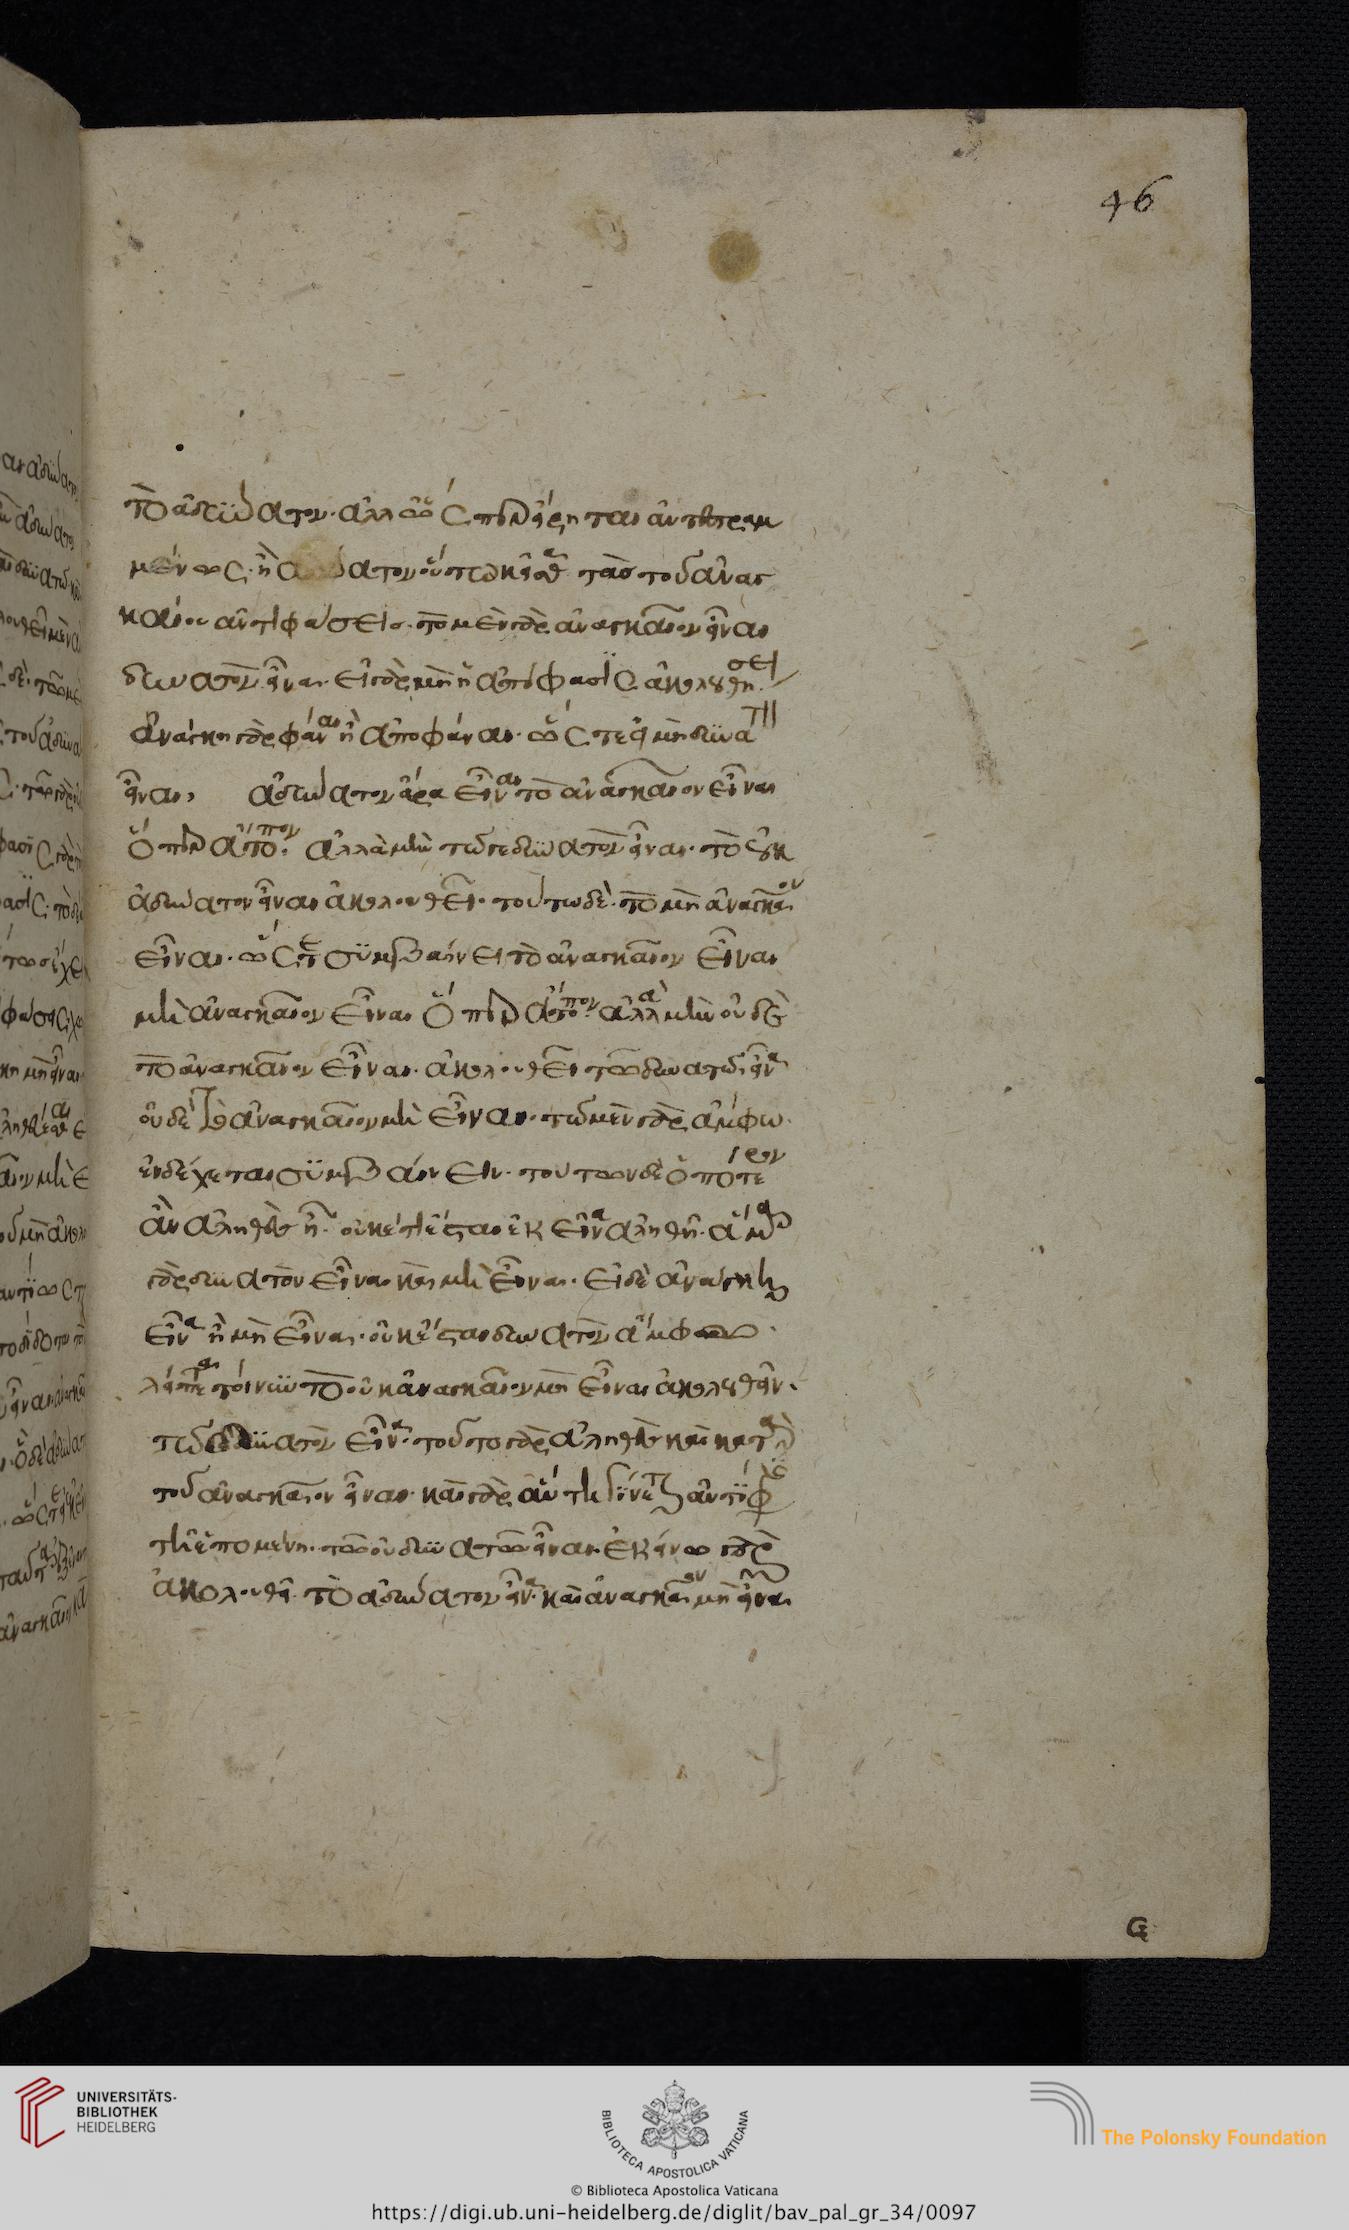 46
τὸ ἀδύνατον. ἀλλ' ὥσπερ εἴρηται ἀντεστραμ
μένως. ἢ ἀδύνατον οὕτω κεῖσθαι τὰς τοῦ ἀναγ
καίου ἀντιφάσεις. τὸ μὲν γὰρ ἀναγκαῖον εἶναι
δυνατὸν εἶναι. εἰ γὰρ μὴ ἡ ἀπόφασις ἀκολουθήσει
ἀνάγκη γὰρ φάναι ἢ ἀποφάναι. ὥστε εἰ μὴ δυνατὸν
εἶναι, ἀδύνατον ἄρα εἶναι τὸ ἀναγκαῖον εἶναι
ὅπερ ἄτοπον. ἀλλὰ μὴν τῶ γε δυνατὸν εἶναι. τὸ οὐκ
ἀδύνατον εἶναι ἀκολουθεῖ. τούτω δὲ. τὸ μὴ ἀναγκαῖον
εἶναι. ὥστε συμβαίνει τὸ ἀναγκαῖον εἶναι
μὴ ἀναγκαῖον εἶναι ὅπερ ἄτοπον. ἀλλὰ μὴν οὐδὲ
τὸ ἀναγκαῖον εἶναι. ἀκολουθεῖ τῶ δυνατῶ εἶναι
οὐδὲ τὸ ἀναγκαῖον μὴ εἶναι. τῶ μὲν γὰρ ἄμφω
ἐνδέχεται συμβαίνειν. τούτων δὲ ὁπότερον
ἂν ἀληθὲς ἦ. οὐκέτι ἔσται ἐκεῖνα ἀληθῆ. ἅμα
γὰρ δυνατὸν εἶναι καὶ μὴ εἶναι. εἰ δὲ ἀνάγκη
εἶναι ἢ μὴ εἶναι. οὐκ ἔσται δυνατὸν ἄμφω.
λείπεται τοίνυν τὸ οὐκ ἀναγκαῖον μὴ εἶναι ἀκολουθεῖν.
τῶ δυνατὸν εἶναι. τοῦτο γὰρ ἀληθὲς καὶ κατὰ
τοῦ ἀναγκαῖον εἶναι. καὶ γὰρ αὕτη γίνεται ἀντίφασις
τῆ ἑπομένη. τῶ οὐ δυνατῶ εἶναι. ἐκείνω γὰρ
ἀκολουθεῖ. τὸ ἀδύνατον εἶναι. καὶ ἀναγκαῖον μὴ εἶναι
UNIVERSITÄTS-
BIBLIOTHEK
HEIDELBERG
BIBLIOTECA APOSTOLICA VATICANA
The Polonsky Foundation
© Biblioteca Apostolica Vaticana
https://digi.ub.uni-heidelberg.de/diglit/bav_pal_gr_34/0097